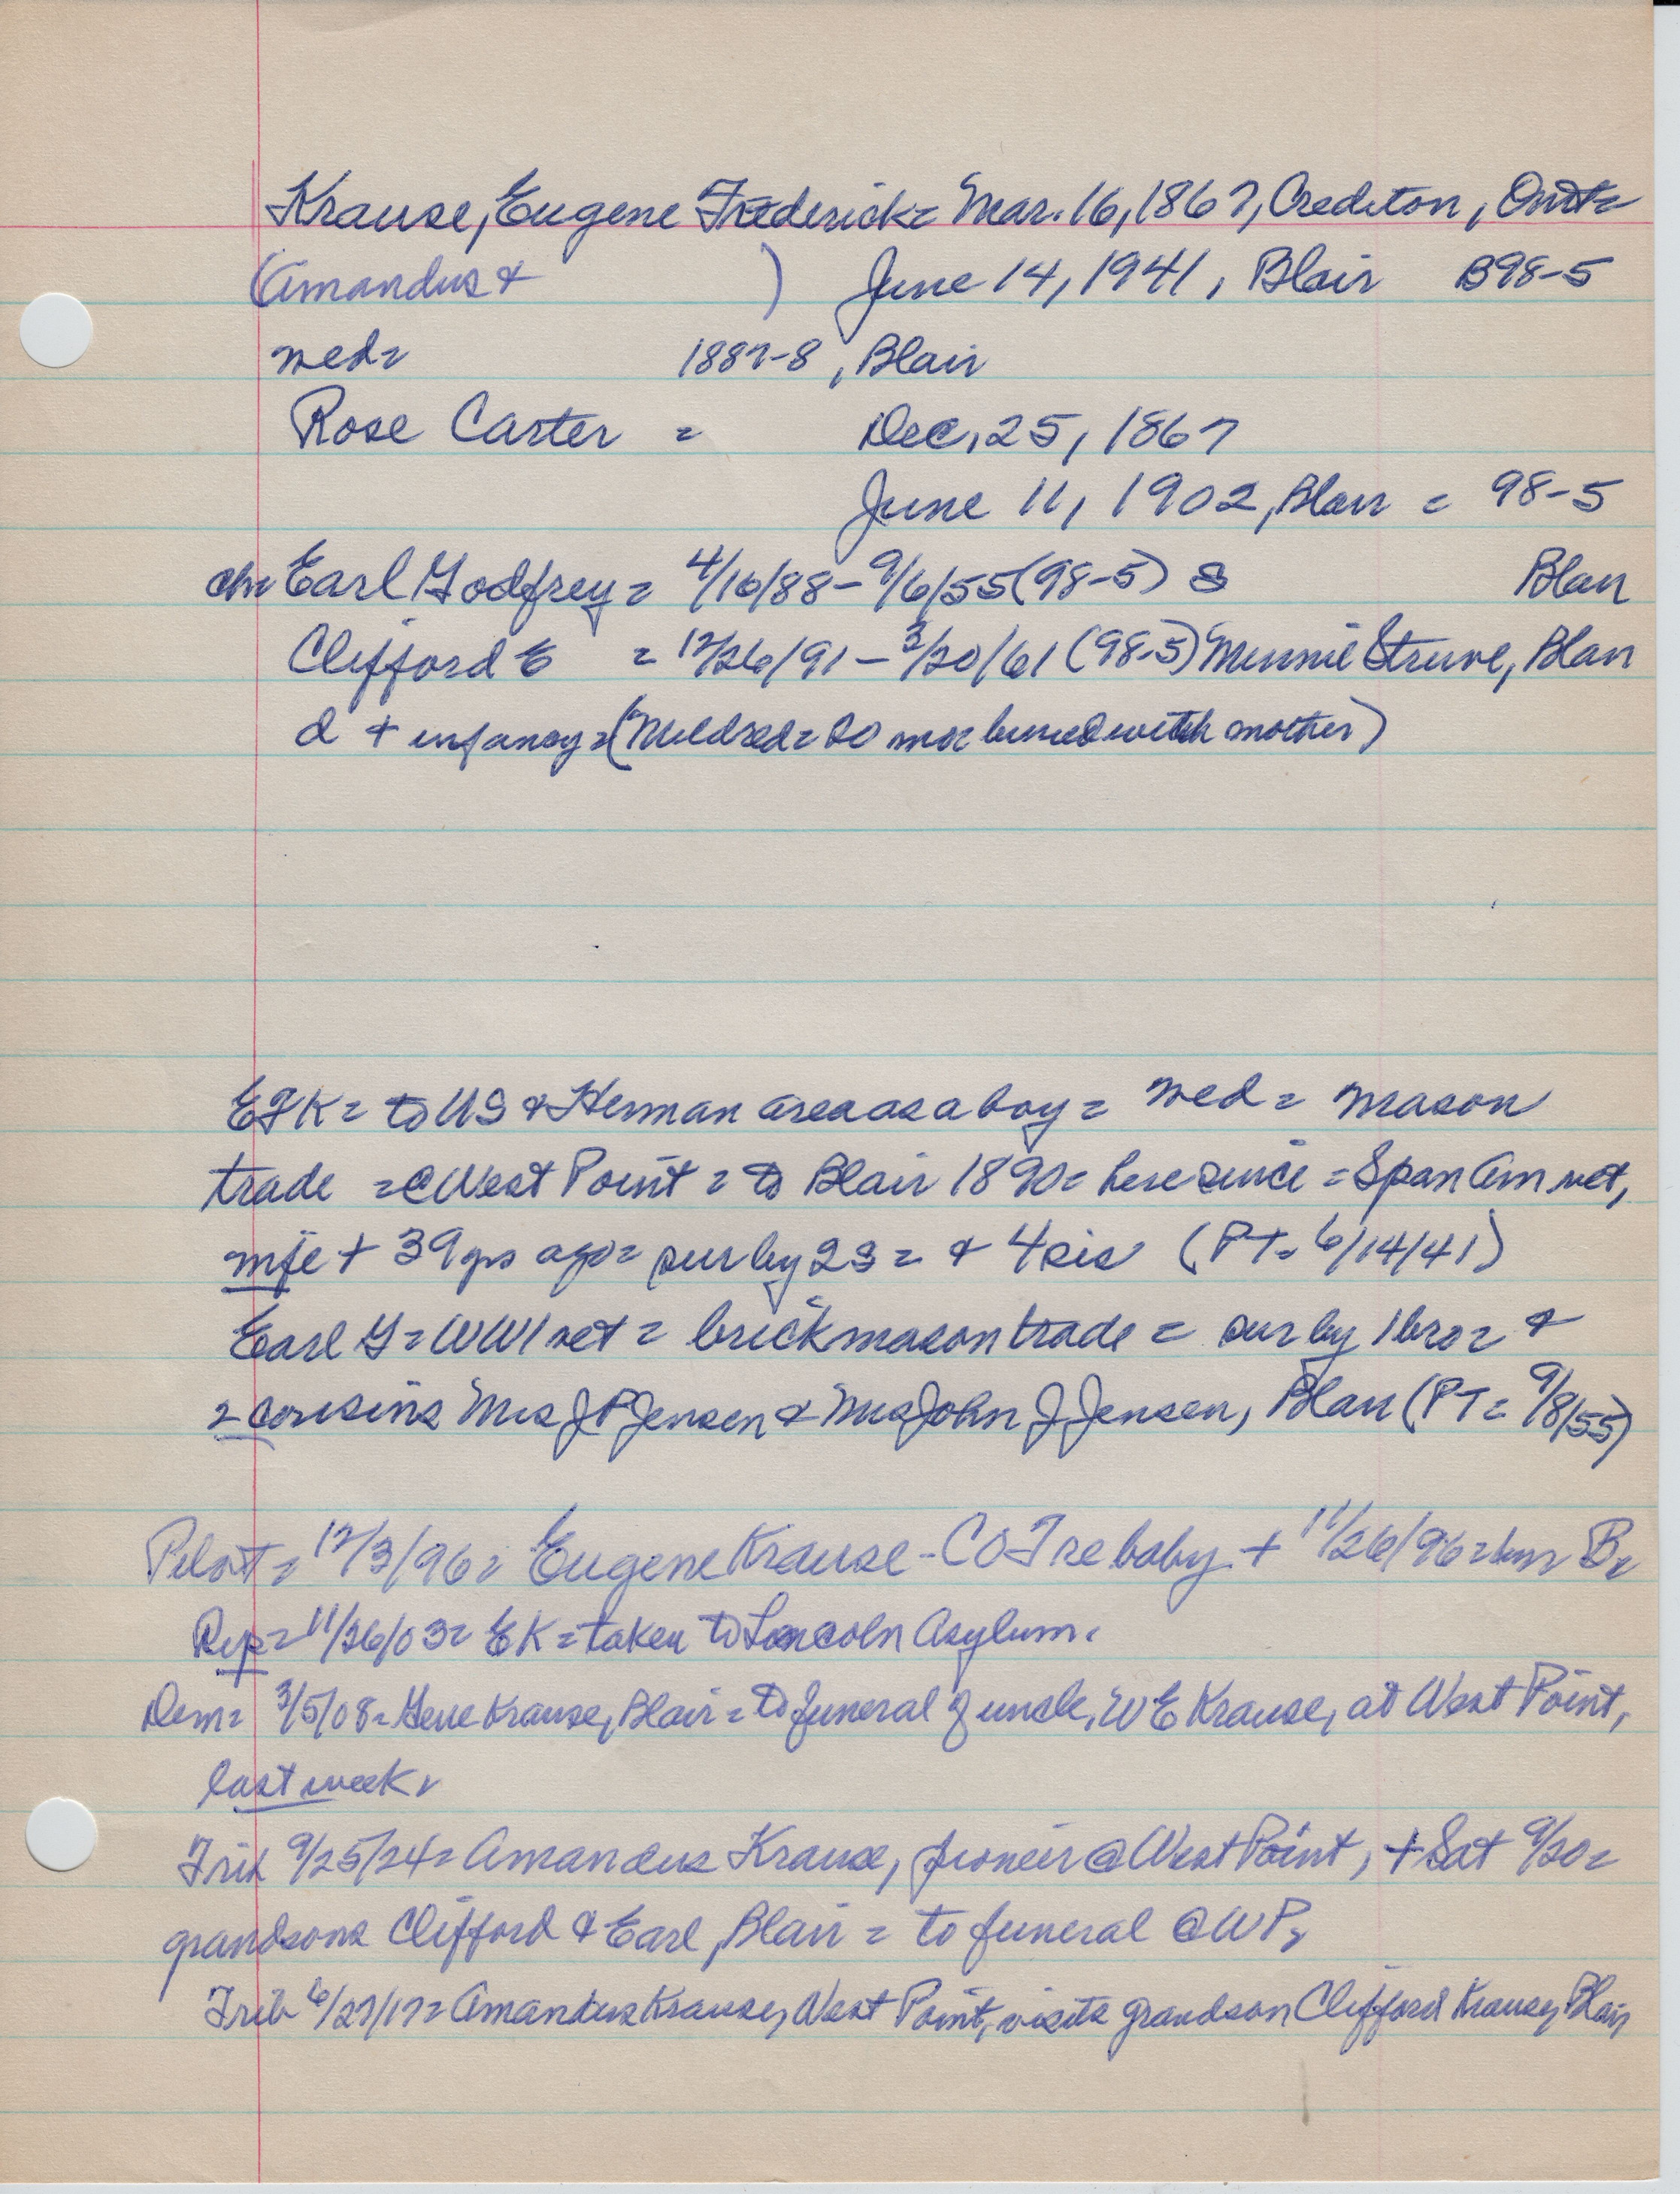 Krause, Eugene Frederick = Mar. 16, 1867, Crediton, Ont =
(Amandus & ) June 14, 1941, Blair B98-5
wed = 1887-8, Blair
Rose Carter = Dec. 25, 1867
June 11, 1902, Blair = 98-5
ch = Earl Godfrey = 4/16/88 - 9/6/55 (98-5) S Blair
Clifford E = 12/26/91 - 3/20/61 (98-5) Minnie Struve, Blair
d + infancy = (Mildred = 20 mo = buried with mother)
EFK = to US & Herman area as a boy = wed = mason
trade = @ West Point = to Blair 1890 = here since = Span Am vet,
mfe + 39 yrs ago = sur by 2S = & 4 sis (PT = 6/14/41)
Earl G = WW1 vet = brick mason trade = sur by 1 bro = &
2 cousins Mrs J P Jensen & Mrs John J Jensen, Blair (PT = 9/8/55)
Pilot = 12/3/96 = Eugene Krause - COT re baby + 11/26/96 = bur B =
Rep = 11/26/03 = EK = taken to Lincoln Asylum.
Dem = 3/5/08 = Gene Krause, Blair = to funeral of uncle, W E Krause, at West Point,
last week.
Trib 9/25/24 = Amandus Krause, pioneer @ West Point, + Sat 9/20 =
grandsons Clifford & Earl, Blair = to funeral @ WP,
Trib 6/27/17 = Amandus Krause, West Point, visits grandson Clifford Krause, Blair